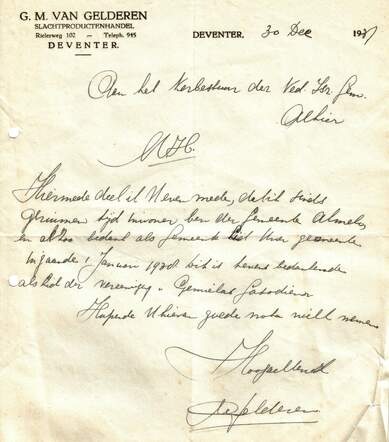 G. M. VAN GELDEREN
SLACHTPRODUCTENHANDEL
Rielerweg 102 — Teleph. 945
DEVENTER.
DEVENTER, 30 Dec 1937
Aan het Kerbestuur der Ned. Isr. Gem.
Alhier
M.H.
Hiermede deel ik U even mede, dat ik sinds
geruimen tijd inwoner ben der Gemeente Almelo,
en alzoo bedank als Gemeente lid Uwer gemeente
ingaande 1 Januari 1938 dit is tevens bedankende
als lid der vereeniging
Hopende U hiervan goede nota wilt nemen
Hoogachtend
v Gelderen